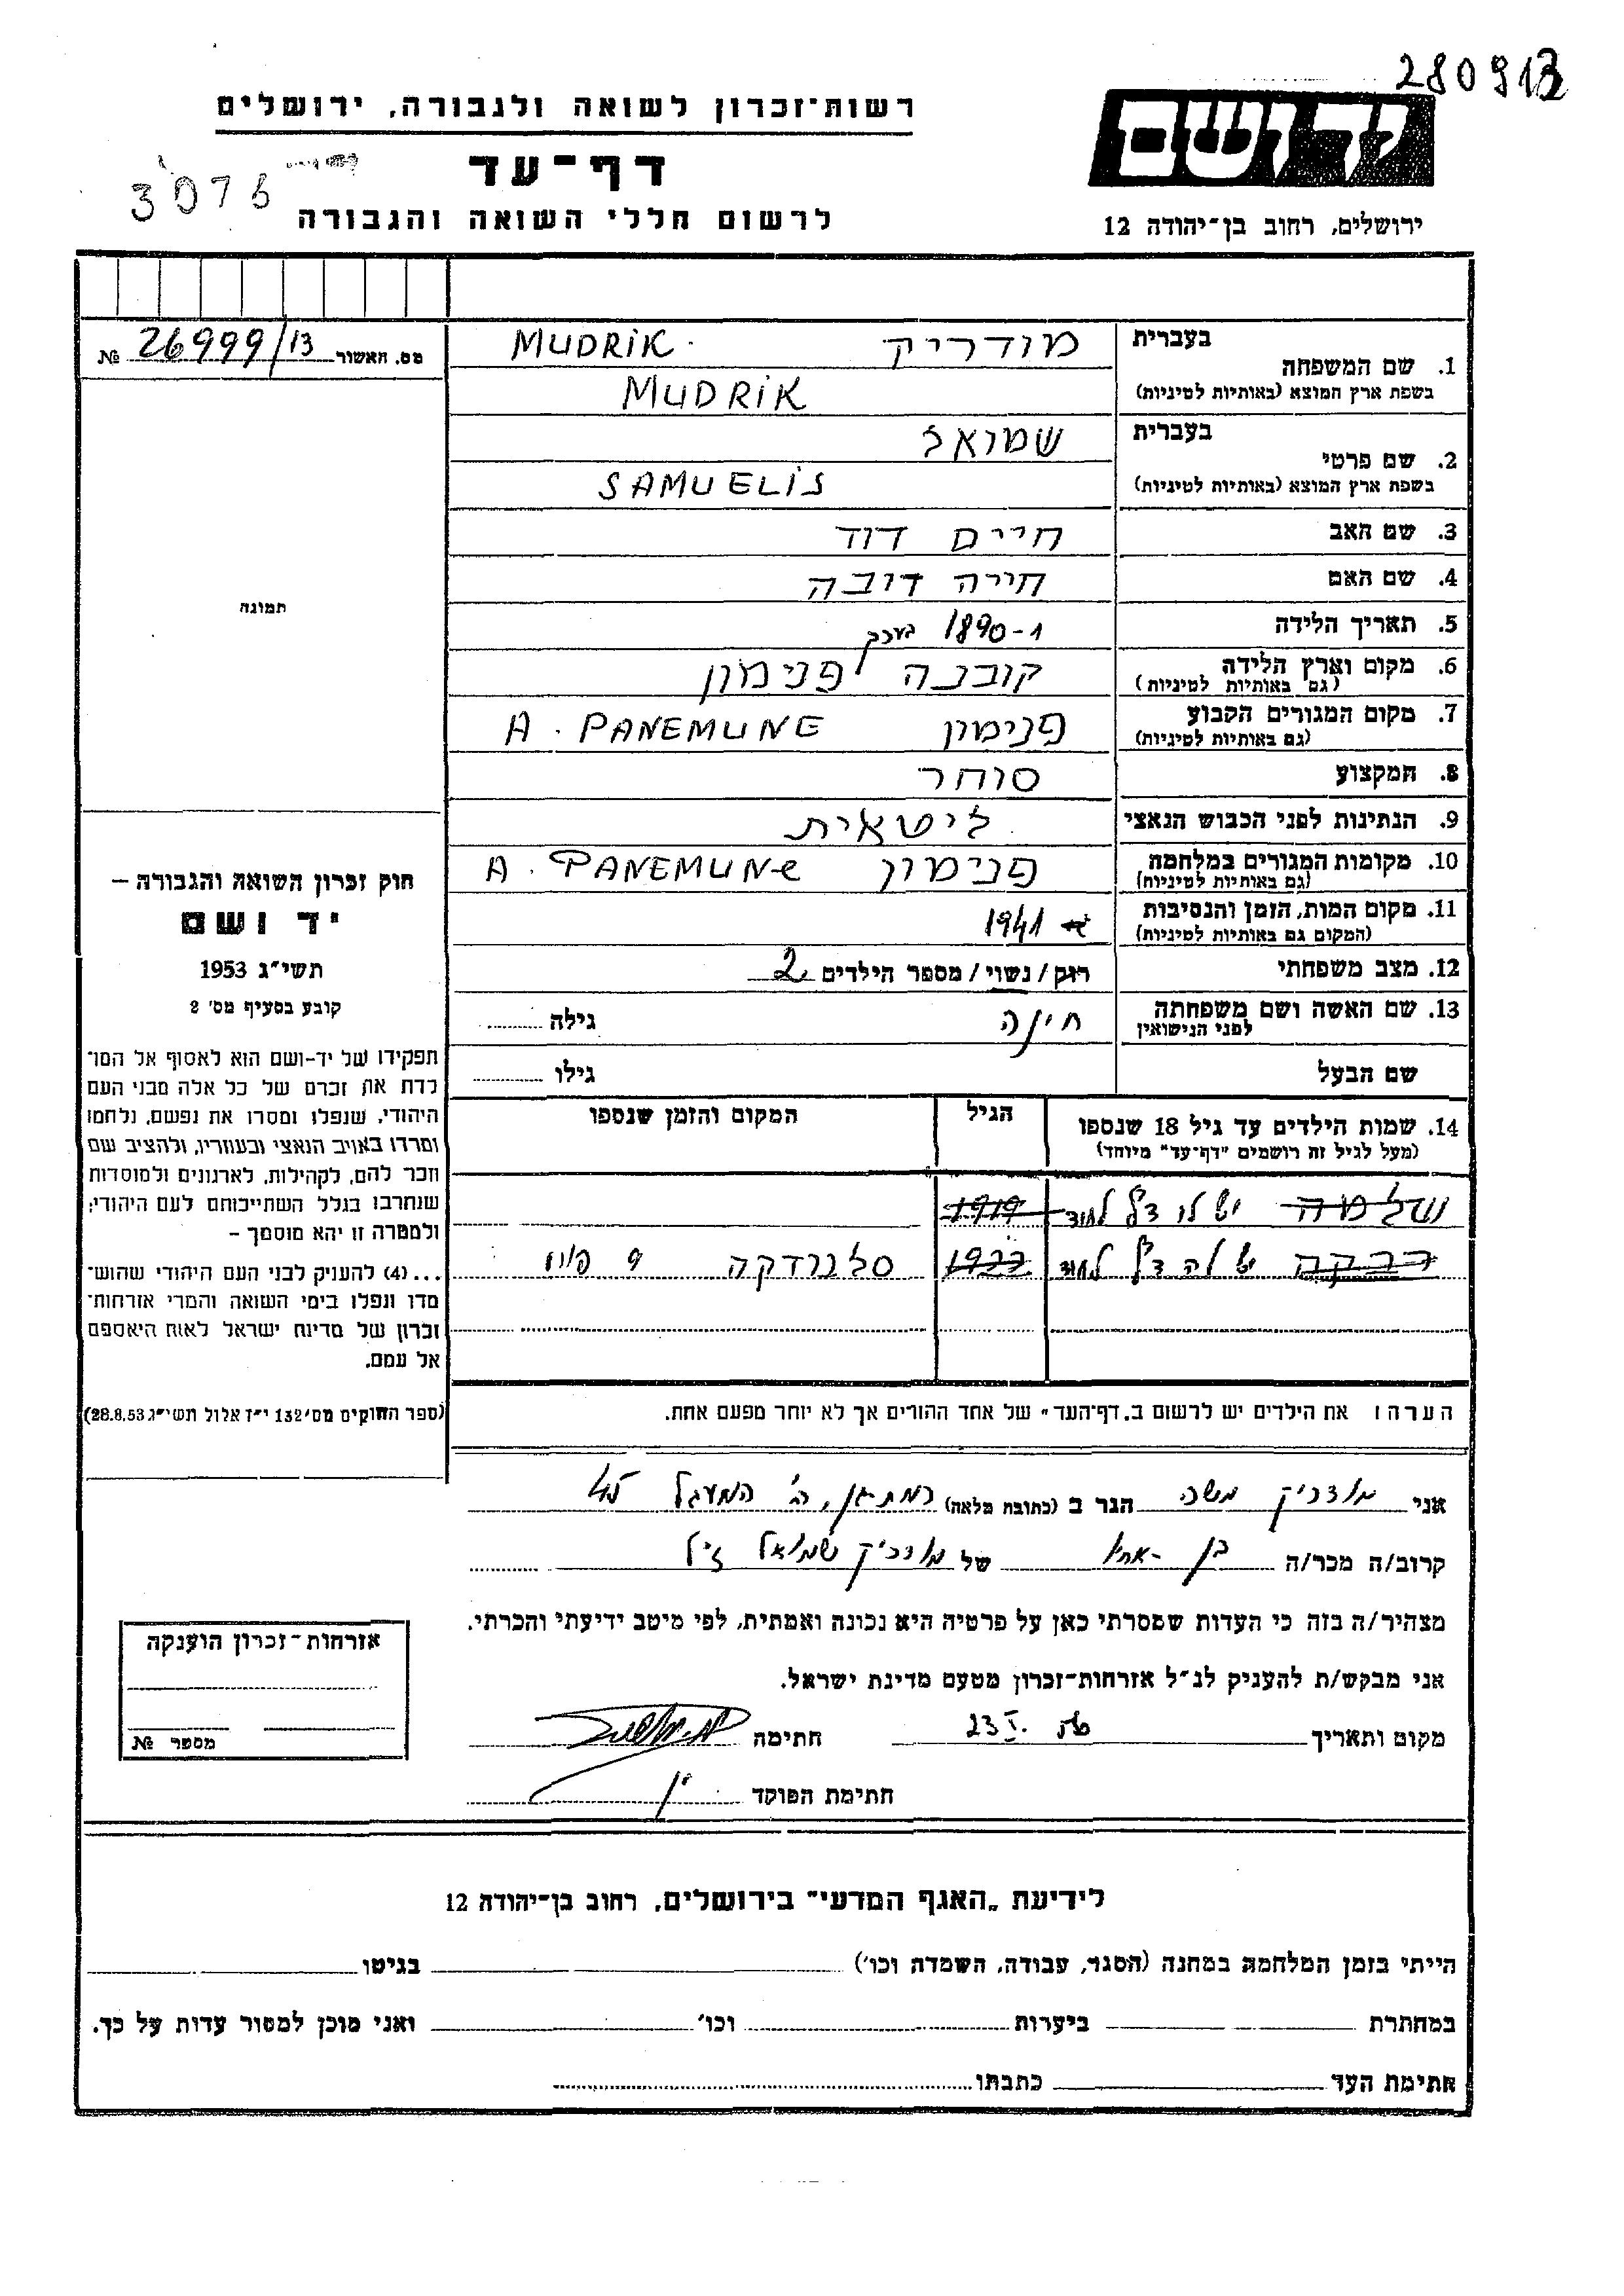 280913
רשות-זכרון לשואה ולגבורה, ירושלים
ידושם
דף-עד
3076
לרשום חללי השואה והגבורה
ירושלים, רחוב בן-יהודה 12
מס. האשור 26999/13 №
1. שם המשפחה
בעברית מודריק MUDRIK
בשפת ארץ המוצא (באותיות לטיניות) MUDRIK
2. שם פרטי
בעברית שמואל
בשפת ארץ המוצא (באותיות לטיניות) SAMUELIS
3. שם האב חיים דוד
4. שם האם חירה דובה
5. תאריך הלידה 1890-1 בערך
6. מקום וארץ הלידה קובנה פנימון
(גם באותיות לטיניות)
7. מקום המגורים הקבוע פנימון A. PANEMUNE
(גם באותיות לטיניות)
8. המקצוע סוחר
9. הנתינות לפני הכבוש הנאצי ליטאית
10. מקומות המגורים במלחמה פנימון A. PANEMUNe
(גם באותיות לטיניות)
11. מקום המות, הזמן והנסיבות 1941
(המקום גם באותיות לטיניות)
12. מצב משפחתי רוק/נשוי/מספר הילדים 2
13. שם האשה ושם משפחתה חינה גילה
לפני הנישואין
שם הבעל גילו
14. שמות הילדים עד גיל 18 שנספו הגיל המקום והזמן שנספו
(מעל לגיל זה רושמים "דף-עד" מיוחד)
שלמה יש לו דף לחוד 1919
רבקה יש לה דף לחוד 1922 סלבודקה פורט 9
הערה: את הילדים יש לרשום ב„דף-העד" של אחד ההורים אך לא יותר מפעם אחת.
תמונה
חוק זכרון השואה והגבורה –
יד ושם
תשי"ג 1953
קובע בסעיף מס' 2
תפקידו של יד-ושם הוא לאסוף אל המו־
לדת את זכרם של כל אלה מבני העם
היהודי, שנפלו ומסרו את נפשם, נלחמו
ומרדו באויב הנאצי ובעוזריו, ולהציב שם
וזכר להם, לקהילות, לארגונים ולמוסדות
שנחרבו בגלל השתייכותם לעם היהודי;
ולמטרה זו יהא מוסמך –
...(4) להעניק לבני העם היהודי שהוש־
מדו ונפלו בימי השואה והמרי אזרחות־
זכרון של מדינת ישראל לאות היאספם
אל עמם.
(ספר החוקים מס' 132 י"ז אלול תשי"ג 28.8.53)
אני מודריק משה הגר ב (כתובת מלאה) רמת גן, רח' המעגל 45
קרוב/ה מכר/ה בן-אחיו של מודריק שמואל ז"ל
מצהיר/ה בזה כי העדות שמסרתי כאן על פרטיה היא נכונה ואמתית, לפי מיטב ידיעתי והכרתי.
אני מבקש/ת להעניק לנ"ל אזרחות-זכרון מטעם מדינת ישראל.
מקום ותאריך 23 I. חתימה
חתימת הפוקד
אזרחות-זכרון הוענקה
מספר №
לידיעת „האגף המדעי" בירושלים, רחוב בן-יהודה 12
הייתי בזמן המלחמה במחנה (הסגר, עבודה, השמדה וכו') בגיטו
במחתרת ביערות וכו' ואני מוכן למסור עדות על כך.
חתימת העד כתבתו